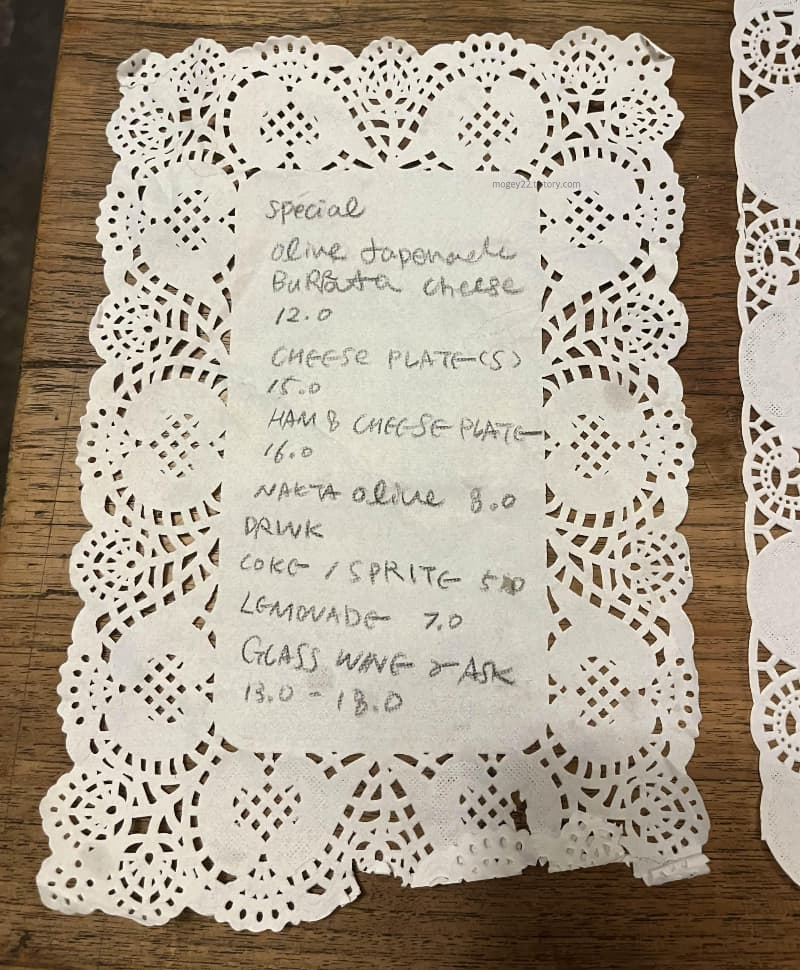 mogey22.tistory.com
Special
olive tapenade
BuRRata cheese
12.0
CHEESE PLATE(S)
15.0
HAM & CHEESE PLATE
16.0
olive 8.0
DRINK
COKE / SPRITE 5.0
LEMONADE 7.0
GLASS WINE ASK
13.0 - 18.0